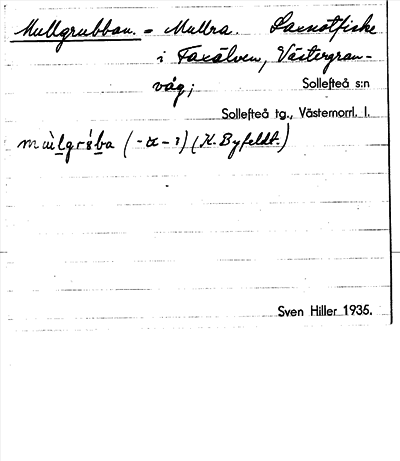 Mullgrubban. = Mullra. Laxnotfiske
i Faxälven, Västergran-
våg; Sollefteå s:n
Sollefteå tg., Västernorrl. l.
(-a - ı) (K. Byfeldt.)
Sven Hiller 1935.